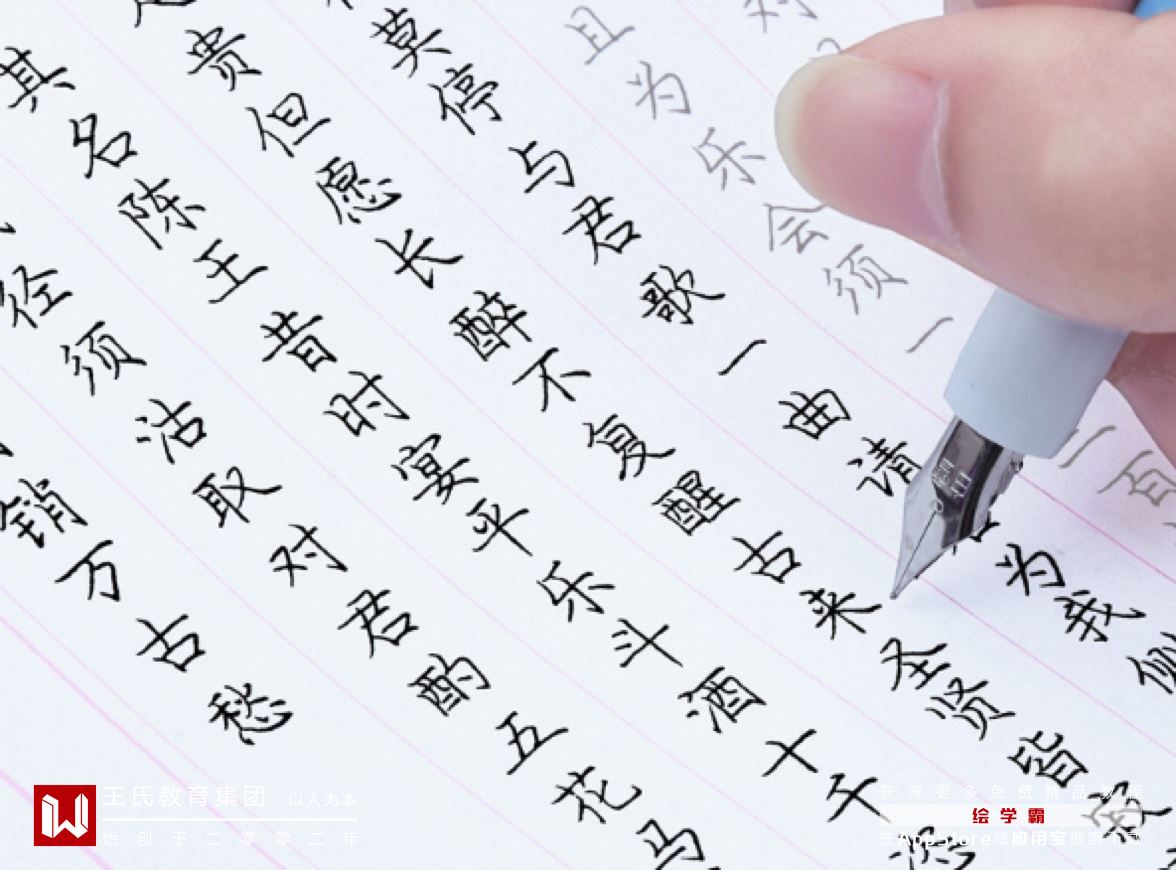 对
百
且为乐会须一
莫停与君歌一曲请为我侧
贵但愿长醉不复醒古来圣贤皆寂
其名陈王昔时宴平乐斗酒十千恣
径须沽取对君酌五花马
销万古愁
王氏教育集团 以人为本
始创于二零零二年
获得更多免费精品教程
绘学霸
在AppStore或应用宝搜索下载